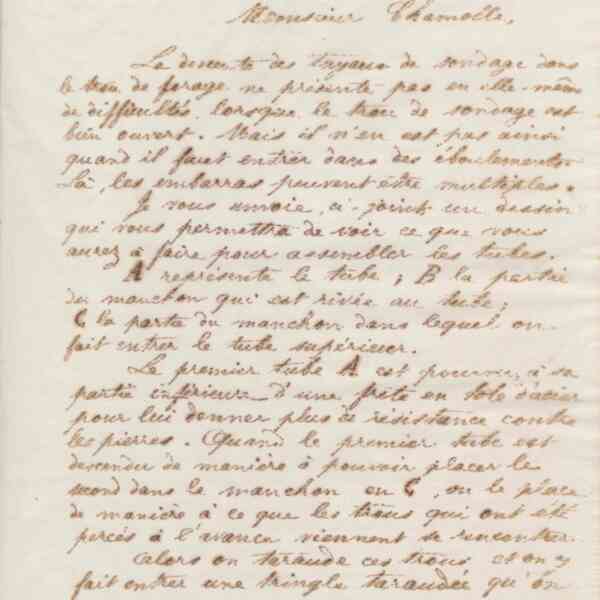 Monsieur Chamolle,
La descente des tuyaux de sondage dans
le trou de forage ne présente pas en elle-même
de difficultés, lorsque le trou de sondage est
bien ouvert. Mais il n'en est pas ainsi
quand il faut entrer dans des éboulements
Là, les embarras peuvent être multiples.
Je vous envoie, ci-joint un dessin
qui vous permettra de voir ce que vous
aurez à faire pour assembler les tubes.
A représente le tube ; B la partie
du manchon qui est rivée au tube ;
C la partie du manchon dans lequel on
fait entrer le tube supérieur.
Le premier tube A est pourvu, à sa
partie inférieure d'une frête en tole d'acier
pour lui donner plus de résistance contre
les pierres. Quand le premier tube est
descendu de manière à pouvoir placer le
second dans le manchon en C, on le place
de manière à ce que les trous qui ont été
percés à l'avance viennent se rencontrer.
Alors on taraude ces trous et on y
fait entrer une tringle taraudée qu'on